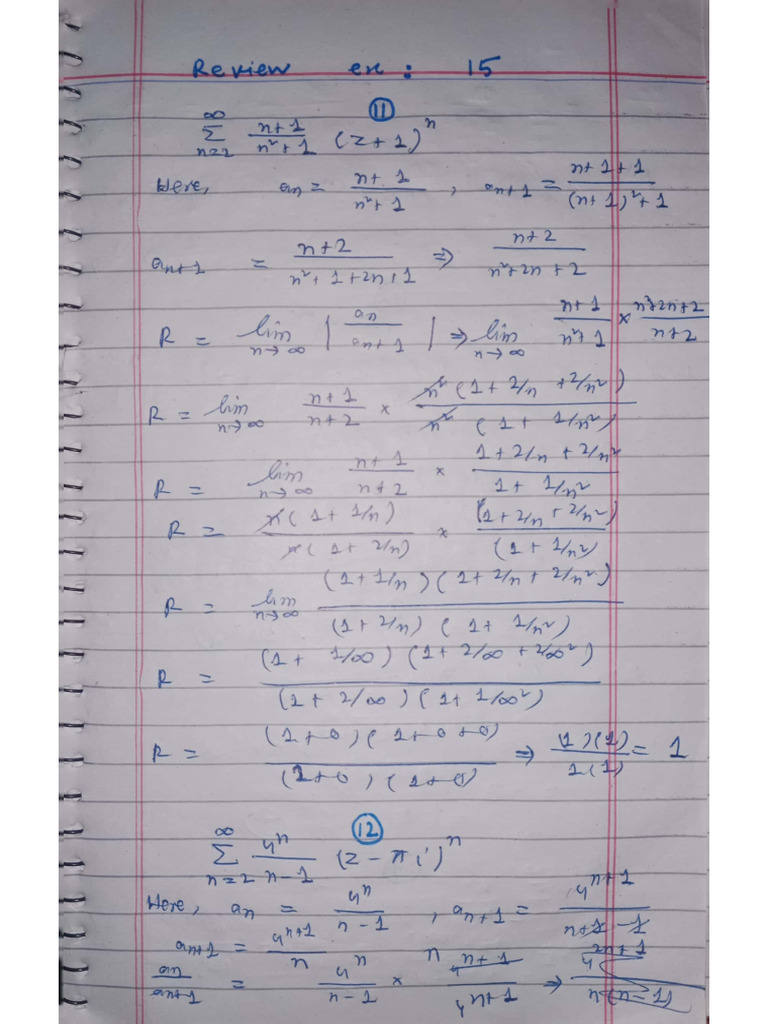 Review ex : 15
⑪
∞ Σ n=2 n+1 / n²+1 (z+1)^n
Here, an = n+1 / n²+1 , an+1 = n+1+1 / (n+1)²+1
an+1 = n+2 / n²+1+2n+1 ⇒ n+2 / n²+2n+2
R = lim n→∞ | an / an+1 | ⇒ lim n→∞ n+1 / n²+1 × n²+2n+2 / n+2
R = lim n→∞ n+1 / n+2 × n²(1+2/n+2/n²) / n²(1+1/n²)
R = lim n→∞ n+1 / n+2 × 1+2/n+2/n² / 1+1/n²
R = n(1+1/n) / n(1+2/n) × (1+2/n+2/n²) / (1+1/n²)
R = lim n→∞ (1+1/n)(1+2/n+2/n²) / (1+2/n)(1+1/n²)
R = (1+1/∞)(1+2/∞+2/∞²) / (1+2/∞)(1+1/∞²)
R = (1+0)(1+0+0) / (1+0)(1+0) ⇒ (1)(1) / 1(1) = 1
⑫
∞ Σ n=2 4^n / n-1 (z-πi)^n
Here, an = 4^n / n-1 , an+1 = 4^n+1 / n+1-1
an+1 = 4^n+1 / n
an / an+1 = 4^n / n-1 × n / 4^n+1 ⇒